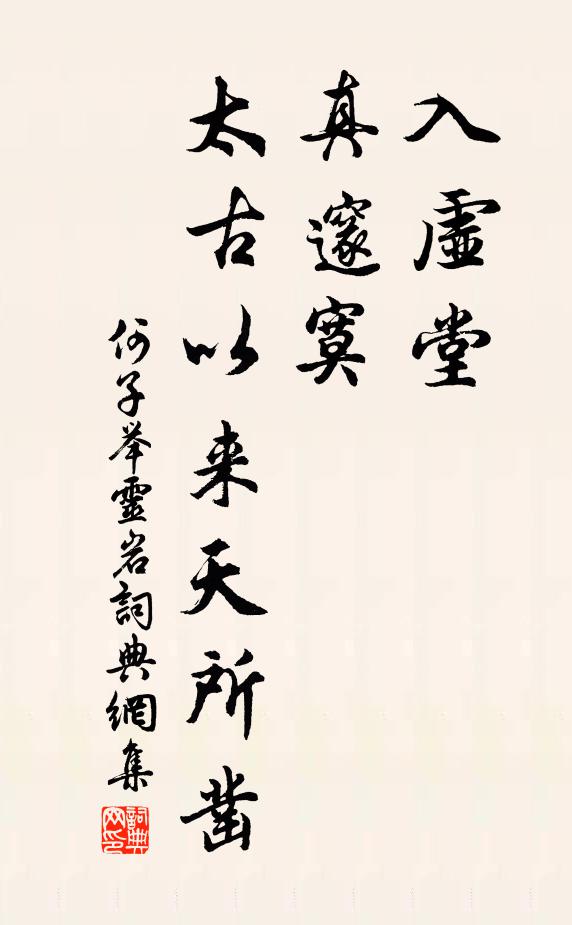 入虛堂
真邃寞
太古以來天所凿
何子举靈岩詞典網集
詞典網印